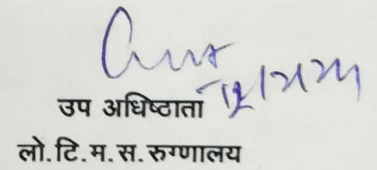 उप अधिष्ठाता
लो.टि.म.स.रुग्णालय